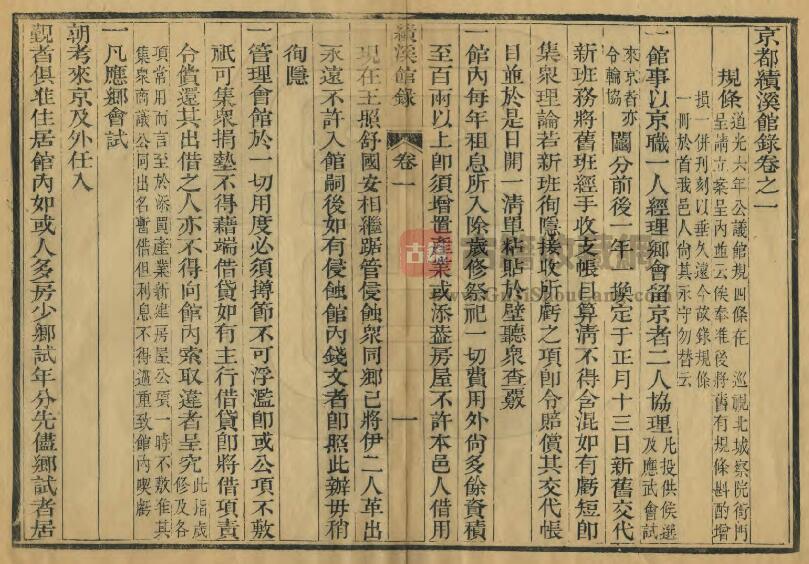 京都績溪館錄卷之一
規條道光六年公議館規四條在 巡視北城察院衙門
呈請立案呈內並云俟奉准後將舊有規條斟酌增
損一併刊刻以垂久遠今故錄規條
一冊於首我邑人尚其永守勿替云
一館事以京職一人經理鄉會留京者二人協理凡投供候選及應武會試
來京者亦令輪協 闔分前後 年 換定于正月十三日新舊交代
新班務將舊班經手收支帳目算清不得含混如有虧短即
集衆理論若新班徇隱接收所虧之項即令賠償其交代帳
目並於是日開一清單粘貼於壁聽衆查覈
一館內每年租息所入除歲修祭祀一切費用外尙多餘資積
至百兩以上即須增置產業或添葢房屋不許本邑人借用
績溪館錄 卷一 一
現在王照舒國安相繼踞管侵蝕衆同鄉已將伊二人革出
永遠不許入館嗣後如有侵蝕館內錢文者即照此辦毋稍
徇隱
一管理會館於一切用度必須撙節不可浮濫即或公項不敷
祇可集衆捐墊不得藉端借貸如有主行借貸即將借項責
令償還其出借之人亦不得向館內索取違者呈究此指歲修及各
項常用而言至於添買產業新建房屋公項一時不敷隹其
集衆商議公同出名暫借但利息不得過重致館內喫虧
一凡應鄉會試
朝考來京及外任入
覲者俱准住居館內如或人多房少鄉試年分先儘鄉試者居
古籍
www.GuJiShouCang.com